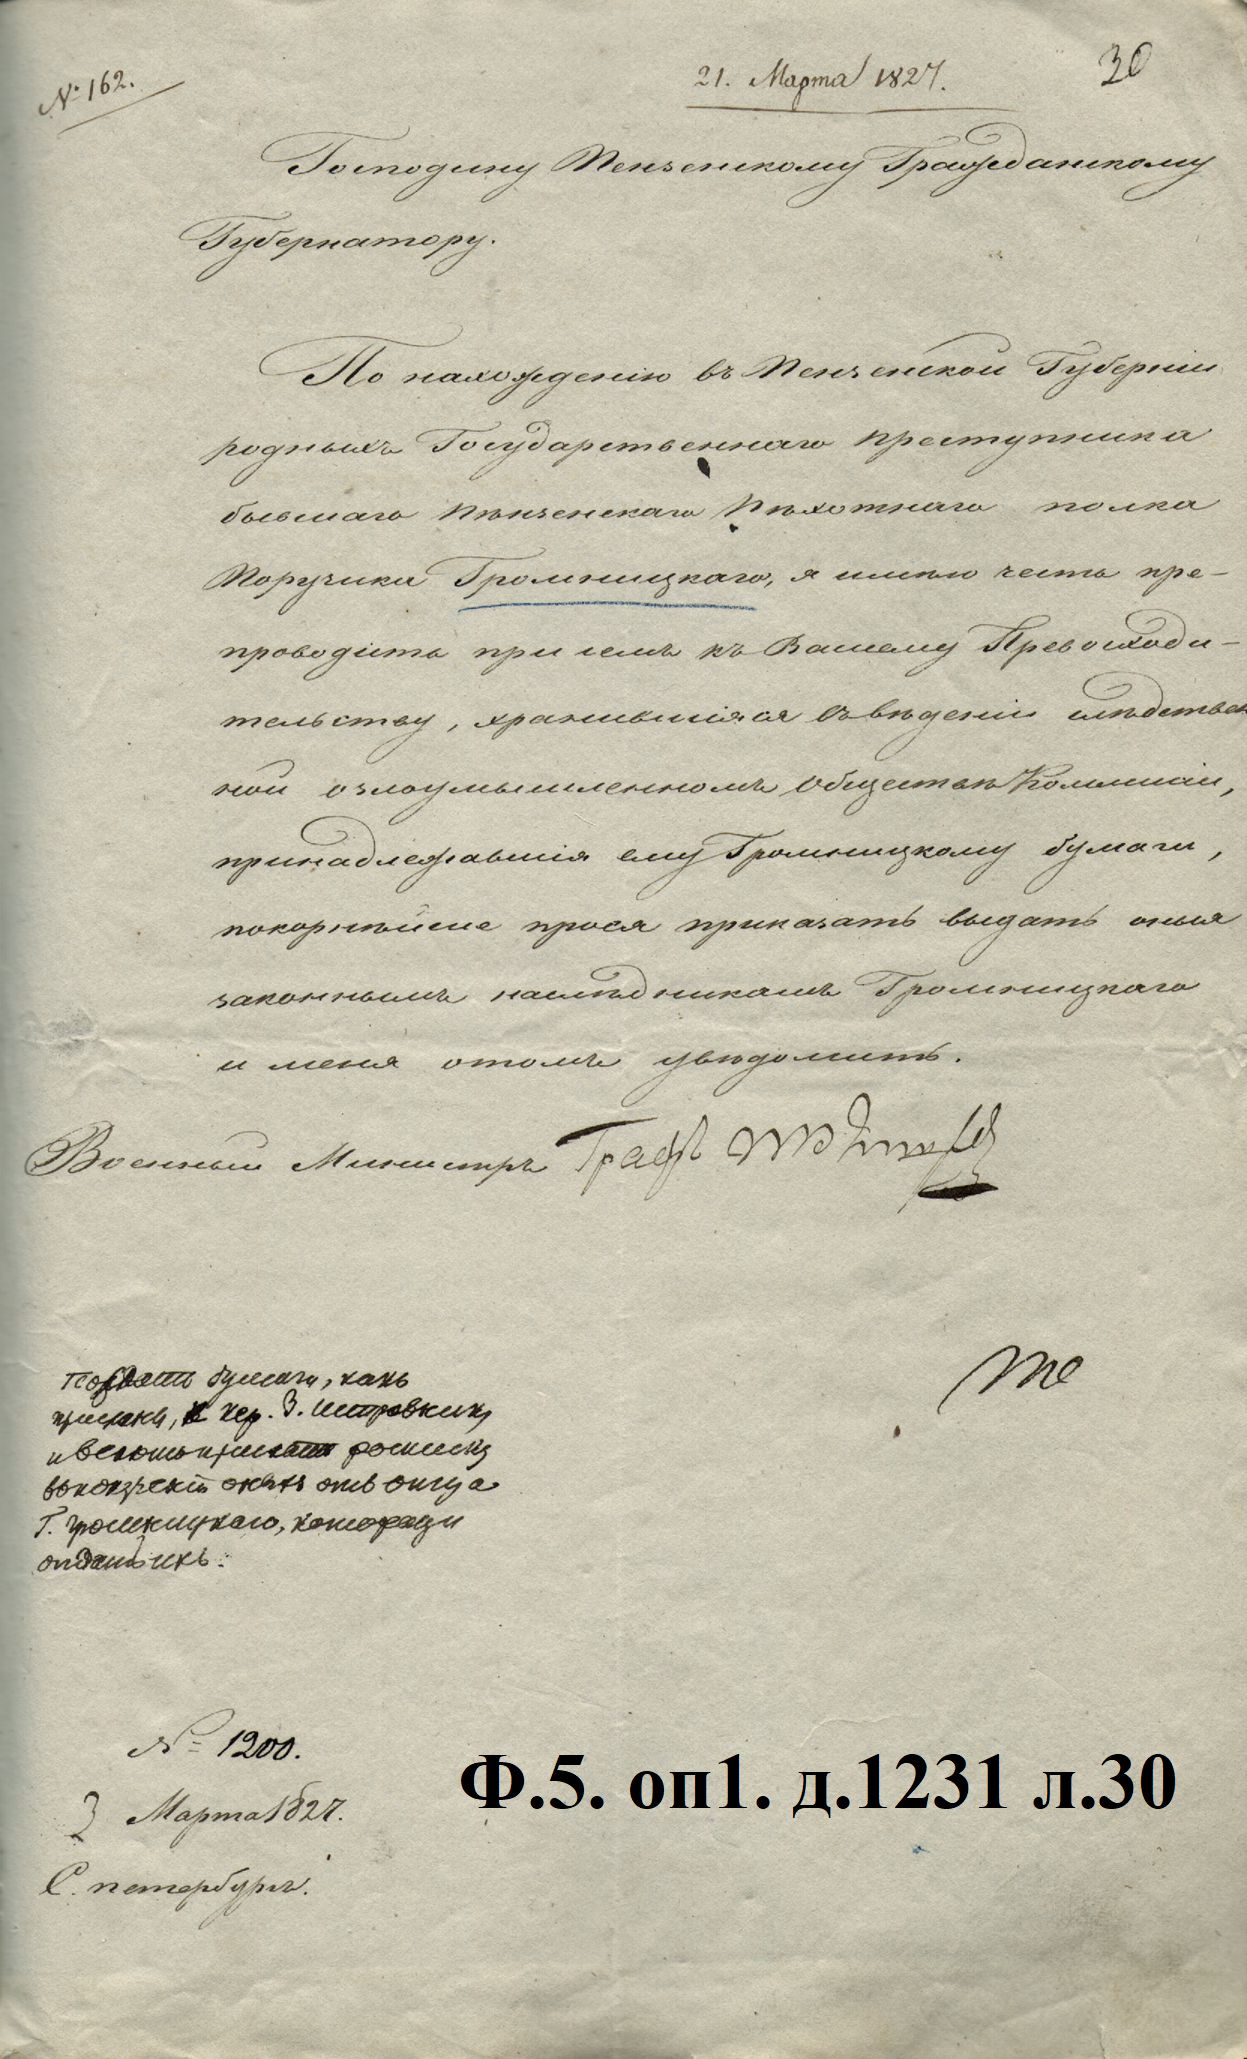 № 162.
21. Марта 1827.
30
Господину Пензенскому Гражданскому
Губернатору.
По нахожденію въ Пензенской Губерніи
родныхъ Государственнаго преступника
бывшаго Пензенскаго Пѣхотнаго полка
Поручика Громницкаго, я имѣю честь пре-
проводить при семъ къ Вашему Превосходи-
тельству, хранившіяся въ вѣденіи слѣдствен
ной о злоумышленномъ обществѣ Коммисіи,
принадлежавшія ему Громницкому бумаги,
покорнѣйше прося приказать выдать оныя
законнымъ наслѣдникамъ Громницкаго
и меня о томъ увѣдомить.
Военный Министръ Графъ
бумаги, какъ
росписку
отъ отца
Г. Громницкаго,
№ 1200.
3 Марта 1827.
С. петербургъ.
Ф.5. оп1. д.1231 л.30